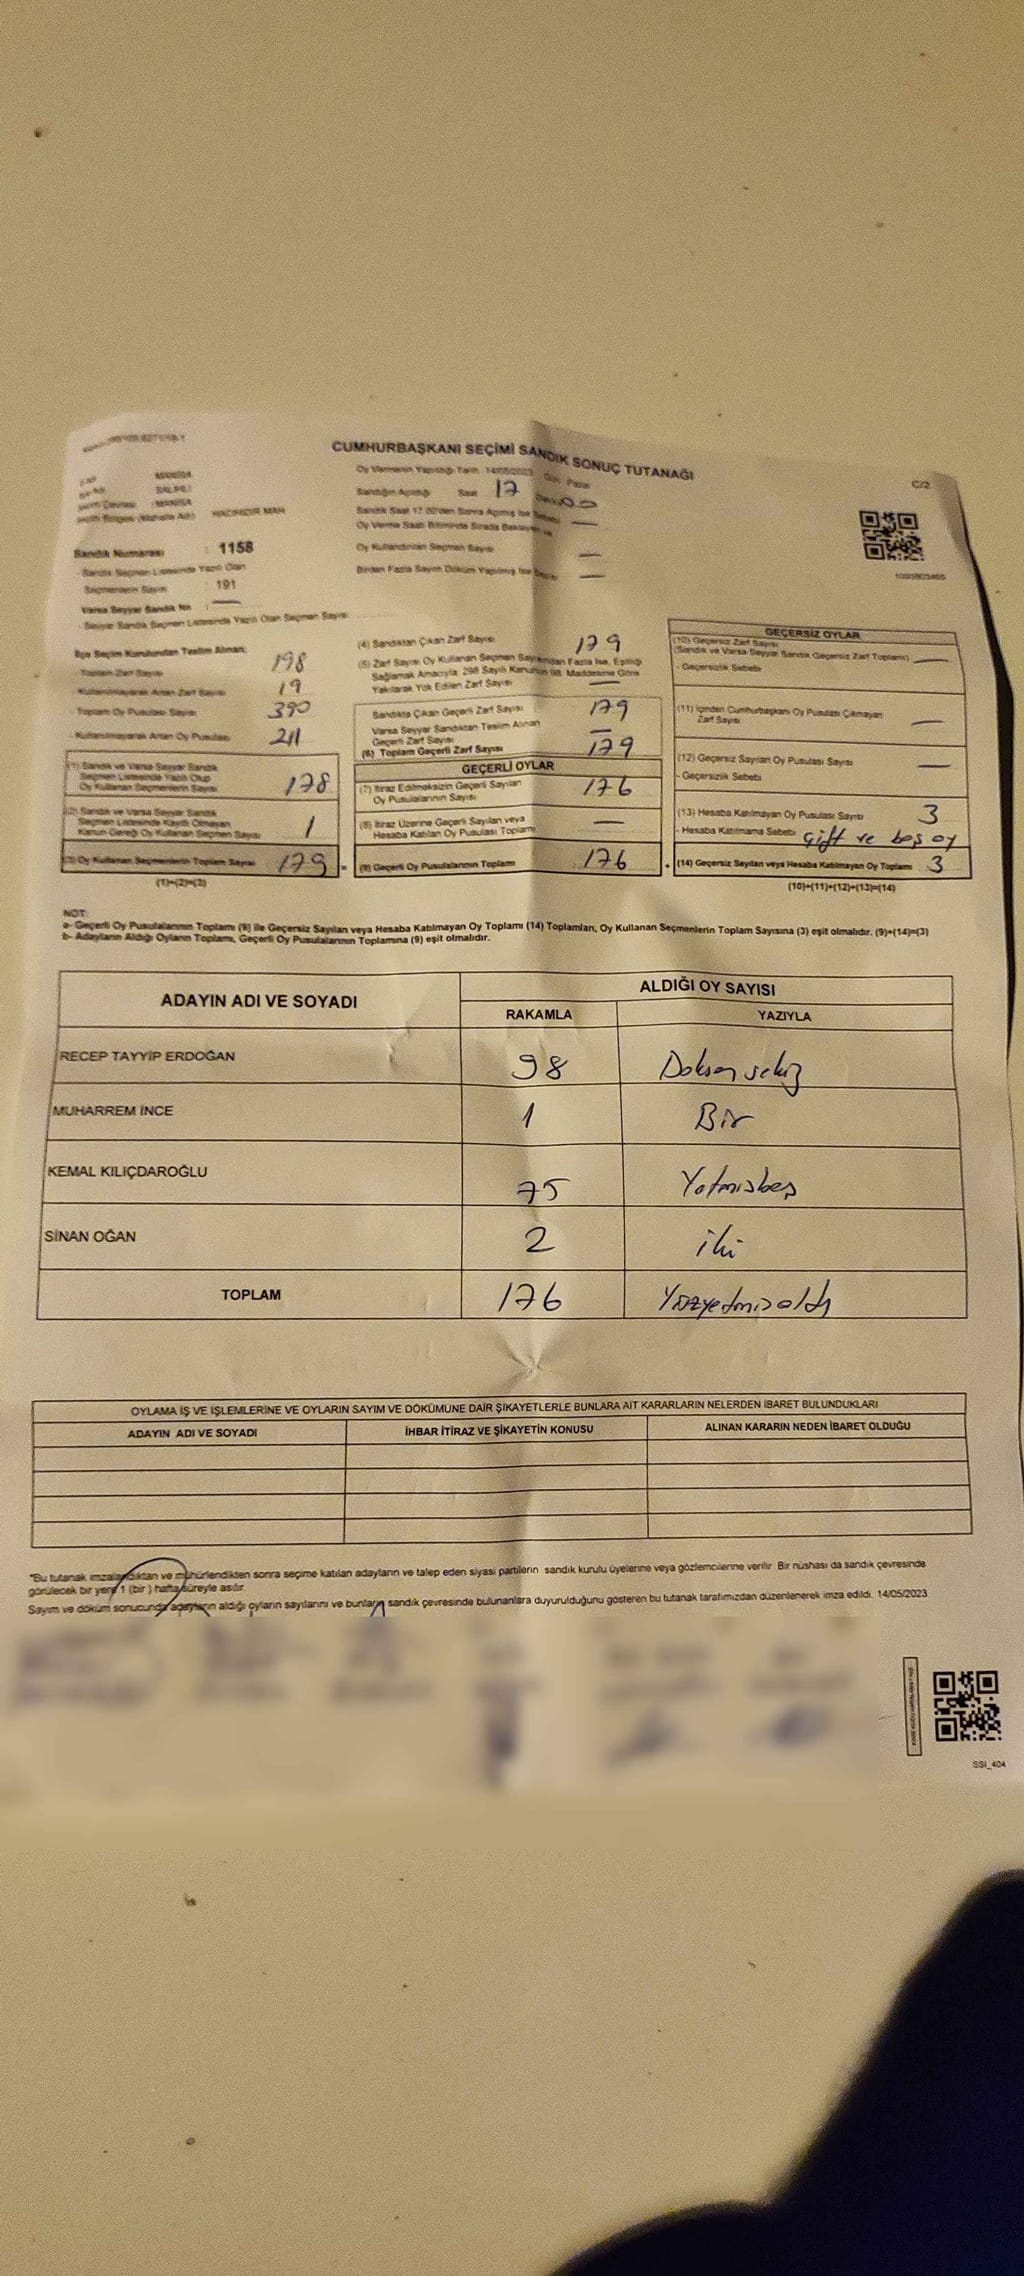 CUMHURBAŞKANI SEÇİMİ SANDIK SONUÇ TUTANAĞI
C/2
MANİSA
SALİHLİ
MANİSA
HACIHIDIR MAH
Oy Vermenin Yapıldığı Tarih: 14/05/2023 Gün: Pazar
Sandığın Açıldığı Saat 17 00
Sandık Saat 17.00'den Sonra Açılmış İse Sebebi —
Oy Verme Saati Bitiminde Sırada Bekleyen ve
Oy Kullandırılan Seçmen Sayısı —
Birden Fazla Sayım Döküm Yapılmış İse —
Sandık Numarası : 1158
- Sandık Seçmen Listesinde Yazılı Olan
Seçmenlerin Sayısı : 191
Varsa Seyyar Sandık No : —
- Seyyar Sandık Seçmen Listesinde Yazılı Olan Seçmen Sayısı
İlçe Seçim Kurulundan Teslim Alınan;
- Toplam Zarf Sayısı 198
- Kullanılmayarak Artan Zarf Sayısı 19
- Toplam Oy Pusulası Sayısı 390
- Kullanılmayarak Artan Oy Pusulası 211
(1) Sandık ve Varsa Seyyar Sandık
Seçmen Listesinde Yazılı Olup
Oy Kullanan Seçmenlerin Sayısı 178
(2) Sandık ve Varsa Seyyar Sandık
Seçmen Listesinde Kayıtlı Olmayan
Kanun Gereği Oy Kullanan Seçmen Sayısı 1
(3) Oy Kullanan Seçmenlerin Toplam Sayısı 179 =
(1)+(2)=(3)
(4) Sandıktan Çıkan Zarf Sayısı 179
(5) Zarf Sayısı Oy Kullanan Seçmen Sayısından Fazla İse, Eşitliği
Sağlamak Amacıyla; 298 Sayılı Kanunun 98. Maddesine Göre
Yakılarak Yok Edilen Zarf Sayısı —
Sandıkta Çıkan Geçerli Zarf Sayısı 179
Varsa Seyyar Sandıktan Teslim Alınan
Geçerli Zarf Sayısı —
(6) Toplam Geçerli Zarf Sayısı 179
GEÇERLİ OYLAR
(7) İtiraz Edilmeksizin Geçerli Sayılan
Oy Pusulalarının Sayısı 176
(8) İtiraz Üzerine Geçerli Sayılan veya
Hesaba Katılan Oy Pusulası Toplamı —
(9) Geçerli Oy Pusulalarının Toplamı 176 +
GEÇERSİZ OYLAR
(10) Geçersiz Zarf Sayısı
(Sandık ve Varsa Seyyar Sandık Geçersiz Zarf Toplamı) —
- Geçersizlik Sebebi
(11) İçinden Cumhurbaşkanı Oy Pusulası Çıkmayan
Zarf Sayısı —
(12) Geçersiz Sayılan Oy Pusulası Sayısı —
- Geçersizlik Sebebi
(13) Hesaba Katılmayan Oy Pusulası Sayısı 3
- Hesaba Katılmama Sebebi çift ve boş oy
(14) Geçersiz Sayılan veya Hesaba Katılmayan Oy Toplamı 3
(10)+(11)+(12)+(13)=(14)
NOT:
a- Geçerli Oy Pusulalarının Toplamı (9) ile Geçersiz Sayılan veya Hesaba Katılmayan Oy Toplamı (14) Toplamları, Oy Kullanan Seçmenlerin Toplam Sayısına (3) eşit olmalıdır. (9)+(14)=(3)
b- Adayların Aldığı Oyların Toplamı, Geçerli Oy Pusulalarının Toplamına (9) eşit olmalıdır.
ADAYIN ADI VE SOYADI
ALDIĞI OY SAYISI
RAKAMLA YAZIYLA
RECEP TAYYİP ERDOĞAN 98 Doksan sekiz
MUHARREM İNCE 1 Bir
KEMAL KILIÇDAROĞLU 75 Yetmişbeş
SİNAN OĞAN 2 iki
TOPLAM 176 Yüzyetmişaltı
OYLAMA İŞ VE İŞLEMLERİNE VE OYLARIN SAYIM VE DÖKÜMÜNE DAİR ŞİKAYETLERLE BUNLARA AİT KARARLARIN NELERDEN İBARET BULUNDUKLARI
ADAYIN ADI VE SOYADI İHBAR İTİRAZ VE ŞİKAYETİN KONUSU ALINAN KARARIN NEDEN İBARET OLDUĞU
*Bu tutanak imzalandıktan ve mühürlendikten sonra seçime katılan adayların ve talep eden siyasi partilerin sandık kurulu üyelerine veya gözlemcilerine verilir. Bir nüshası da sandık çevresinde
görülecek bir yere 1 (bir) hafta süreyle asılır.
Sayım ve döküm sonucunda adayların aldığı oyların sayılarını ve bunların sandık çevresinde bulunanlara duyurulduğunu gösteren bu tutanak tarafımızdan düzenlenerek imza edildi. 14/05/2023
SSI_404